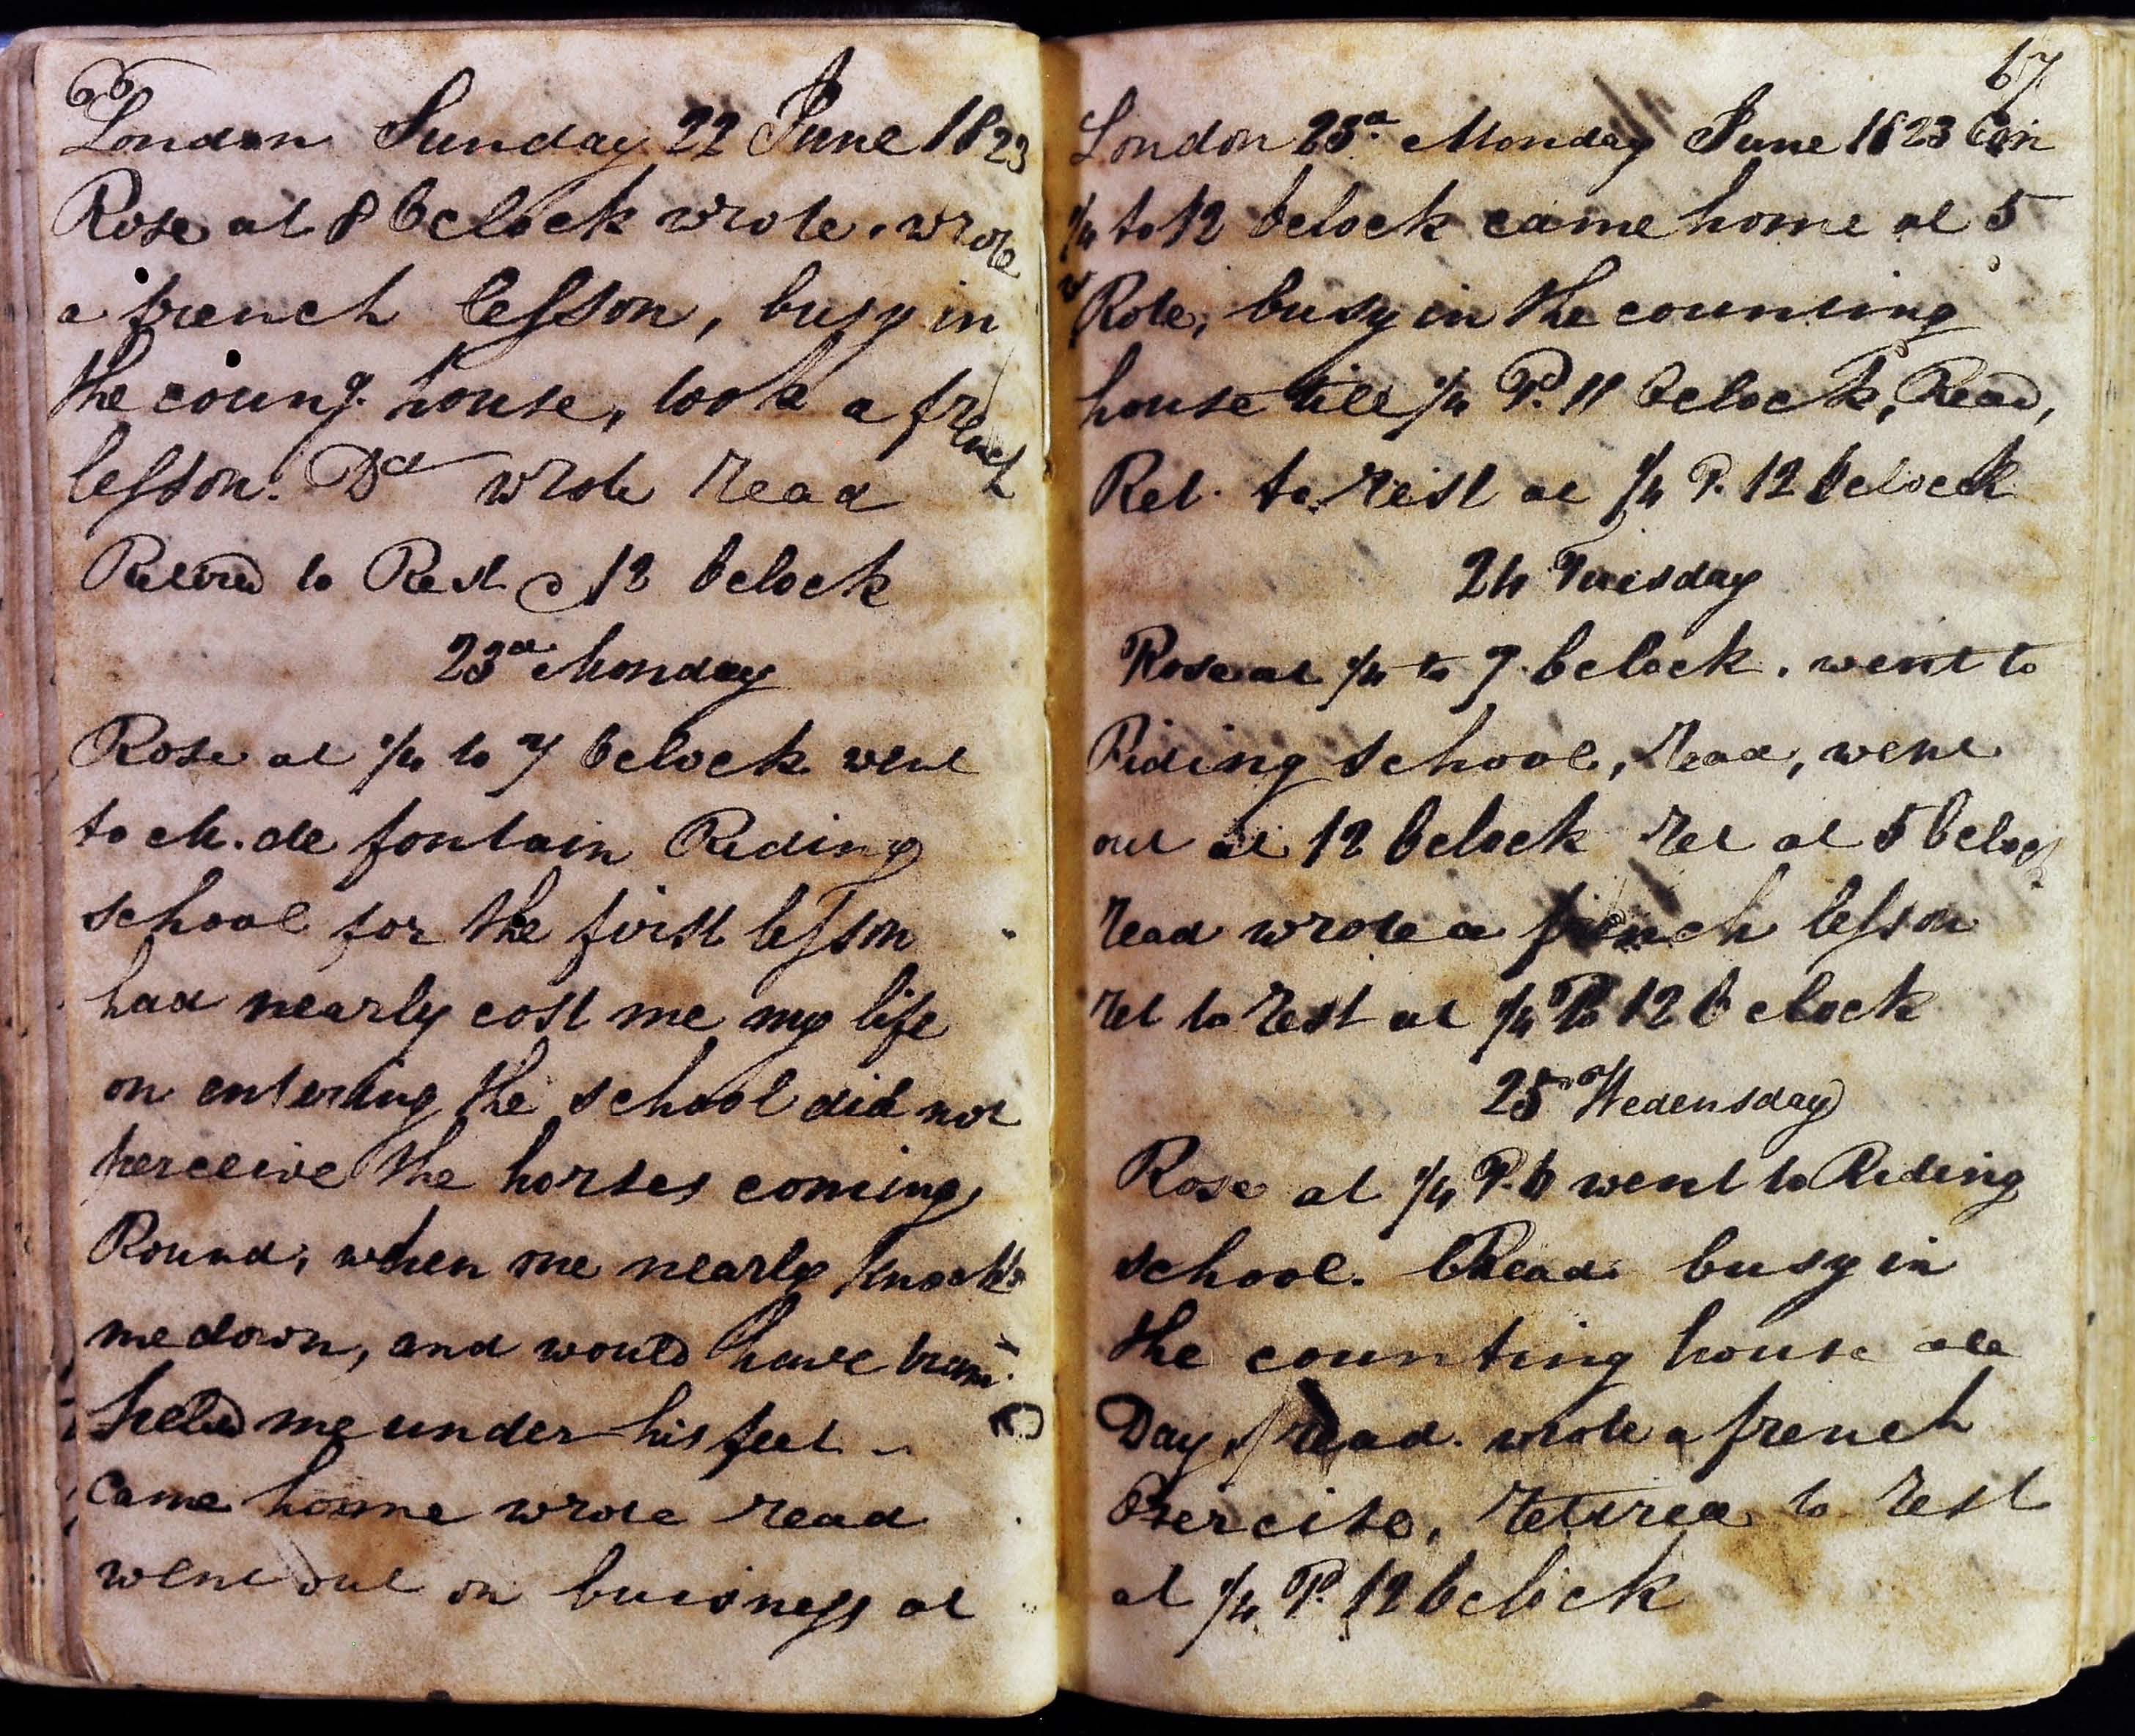 66
London Sunday 22 June 1823
Rose at 8 Oclock wrote. wrote
a french lesson, busy in
the coung. house, took a french
lesson. Dd wrote read
Retired to Rest @ 12 Oclock
23d Monday
Rose at 1/4 to 7 Oclock went
to M. de fontain Riding
school for the first lesson
had nearly cost me my life
on entering the school did not
perceive the horses coming
Round, when one nearly knockd
me down, and would have tram-
peled me under his feet -
Came home wrote read
went out on business at
67
London 23d Monday June 1823 Con
1/4 to 12 Oclock came home at 5
Rote, busy in the counting
house till 1/4 P. 11 Oclock, Read,
Ret. to rest at 1/4 P. 12 Oclock
24 Tuesday
Rose at 1/4 to 7 Oclock. went to
Riding school, read, went
out at 12 Oclock ret at 5 Oclock
read wrote a french lesson
ret to rest at 1/4 P 12 Oclock
25 Wedensday
Rose at 1/4 P. 6 went to Riding
school. Read busy in
the counting house all
Day, read. wrote a french
Exercise, retired to rest
at 1/4 P. 12 Oclock